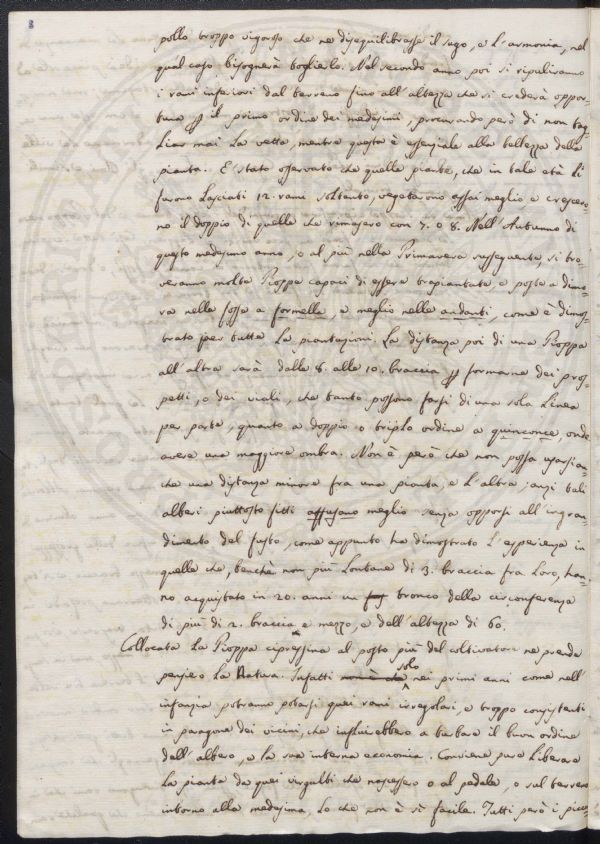 8
pollo troppo vigoroso che ne disequilibrasse il sugo, e l'armonia, nel
qual caso bisognerà toglierlo. Nel secondo anno poi si ripuliranno
i rami inferiori dal terreno fino all'altezza che si crederà oppor-
tuna p il primo ordine dei medesimi, procurando però di non tag-
liar mai la vetta, mentre questa è essenziale alla bellezza della
pianta. E' stato osservato che quelle piante, che in tale età li
furono lasciati 12. rami soltanto, vegetarono assai meglio e crescero-
no il doppio di quelle che rimasero con 7. o 8. Nell'Autunno di
questo medesimo anno, o al più nella Primavera susseguente, si tro-
veranno molte Pioppe capaci di essere trapiantate, e poste a dimo-
ra nelle fosse a formelle, e meglio nelle andanti, come è dimos-
trato per tutte le piantazioni. La distanza poi di una Pioppa
all'altra sarà dalle 8. alle 10. braccia p formarne dei pros-
petti, o dei viali, che tanto possono farsi di una sola linea
per parte, quanto a doppio o triplo ordine a quinconce, onde
avere una maggiore ombra. Non è però che non possa usarsi an-
che una distanza minore fra una pianta, e l'altra; anzi tali
alberi piuttosto fitti affusano meglio senza opporsi all'ingran-
dimento del fusto, come appunto ha dimostrato l'esperienza in
quelle che, benchè non più lontane di 3. braccia fra loro, han-
no acquistato in 20. anni un tronco della circonferenza
di più di 2. braccia e mezzo, e dell'altezza di 60.
Collocata la Pioppa cipressina al posto più del coltivatore ne prende
pensiero la Natura. Infatti solo nei primi anni come nell'
infanzia potranno potarsi quei rami irregolari, e troppo consistenti
in paragone dei vicini, che influirebbero a turbare il buon ordine
dell'albero, e la sua interna economia. Conviene pure liberare
la pianta da quei virgulti che nascessero o al pedale, o sul terreno
intorno alla medesima, lo che non è sì facile. Tutti però i picco-